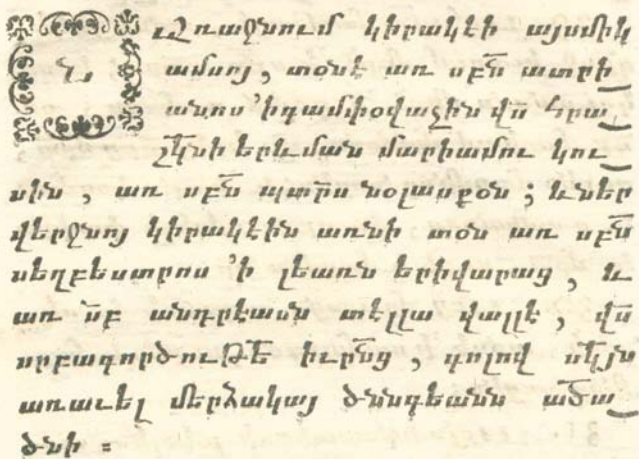 Առաջնում կիրակէի այսմիկ
ամսոյ, տօնէ առ սբն̃ ատրի
անոս 'ի գամփօվաչին վս̃ հրա
շ̃կնի երևման մարիամու կու
սին, առ սբն̃ պտր̃ս նօլասքօն ; և ներ
վերջնոյ կիրակէին առնի տօն առ սբն̃
սեղբեստրոս 'ի լեառն երիվարաց, և
առ ս̃բ անդրէասն տէլլա վալլէ, վս̃
սրբագործութե̃ իւրն̃ց, գոլով մ̃կյն
առաւել մերձակայ ծննդեանն ած̃ա
ծնի ։